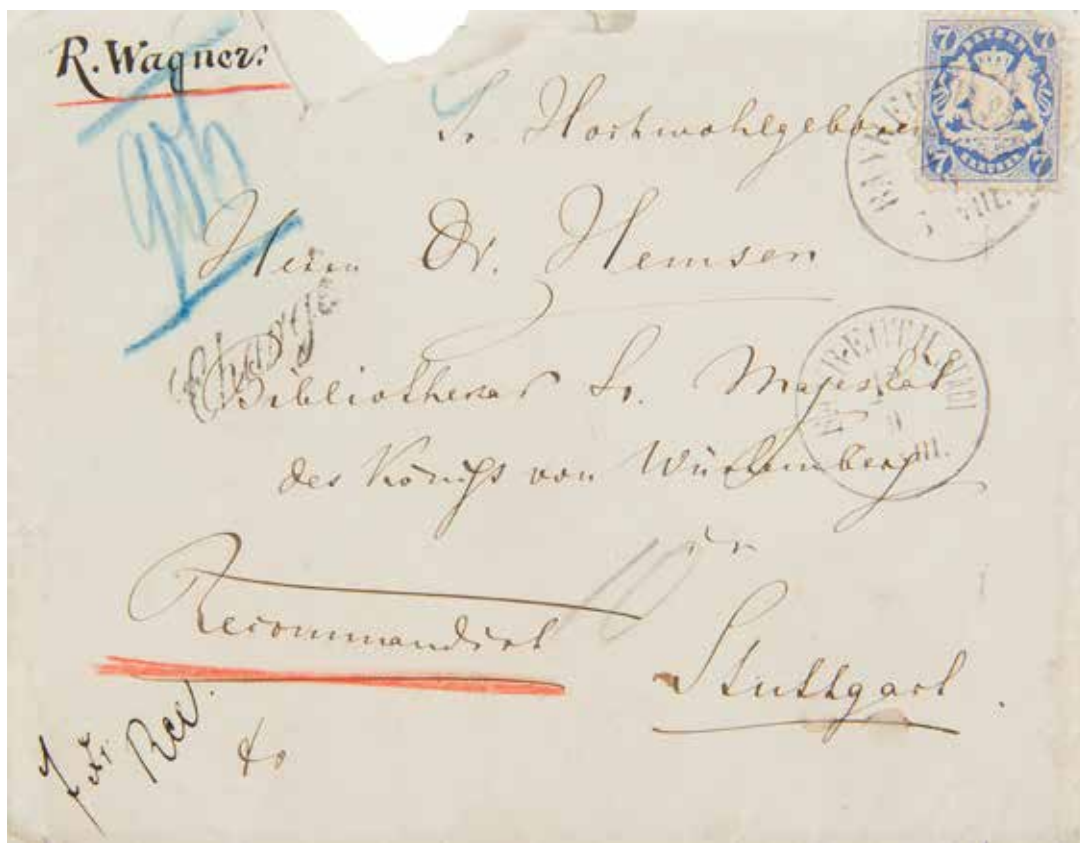 R. Wagner.
Sr. Hochwohlgeboren
Herrn Dr. Hemsen
Chargé
Bibliothekar Sr. Majestät
des Königs von Würtemberg
in
10
Recommandirt
Stuttgart.
7 xr Rec.
7
7
BAYERN
KREUZER
7
7
BAYREUTH
VIII.